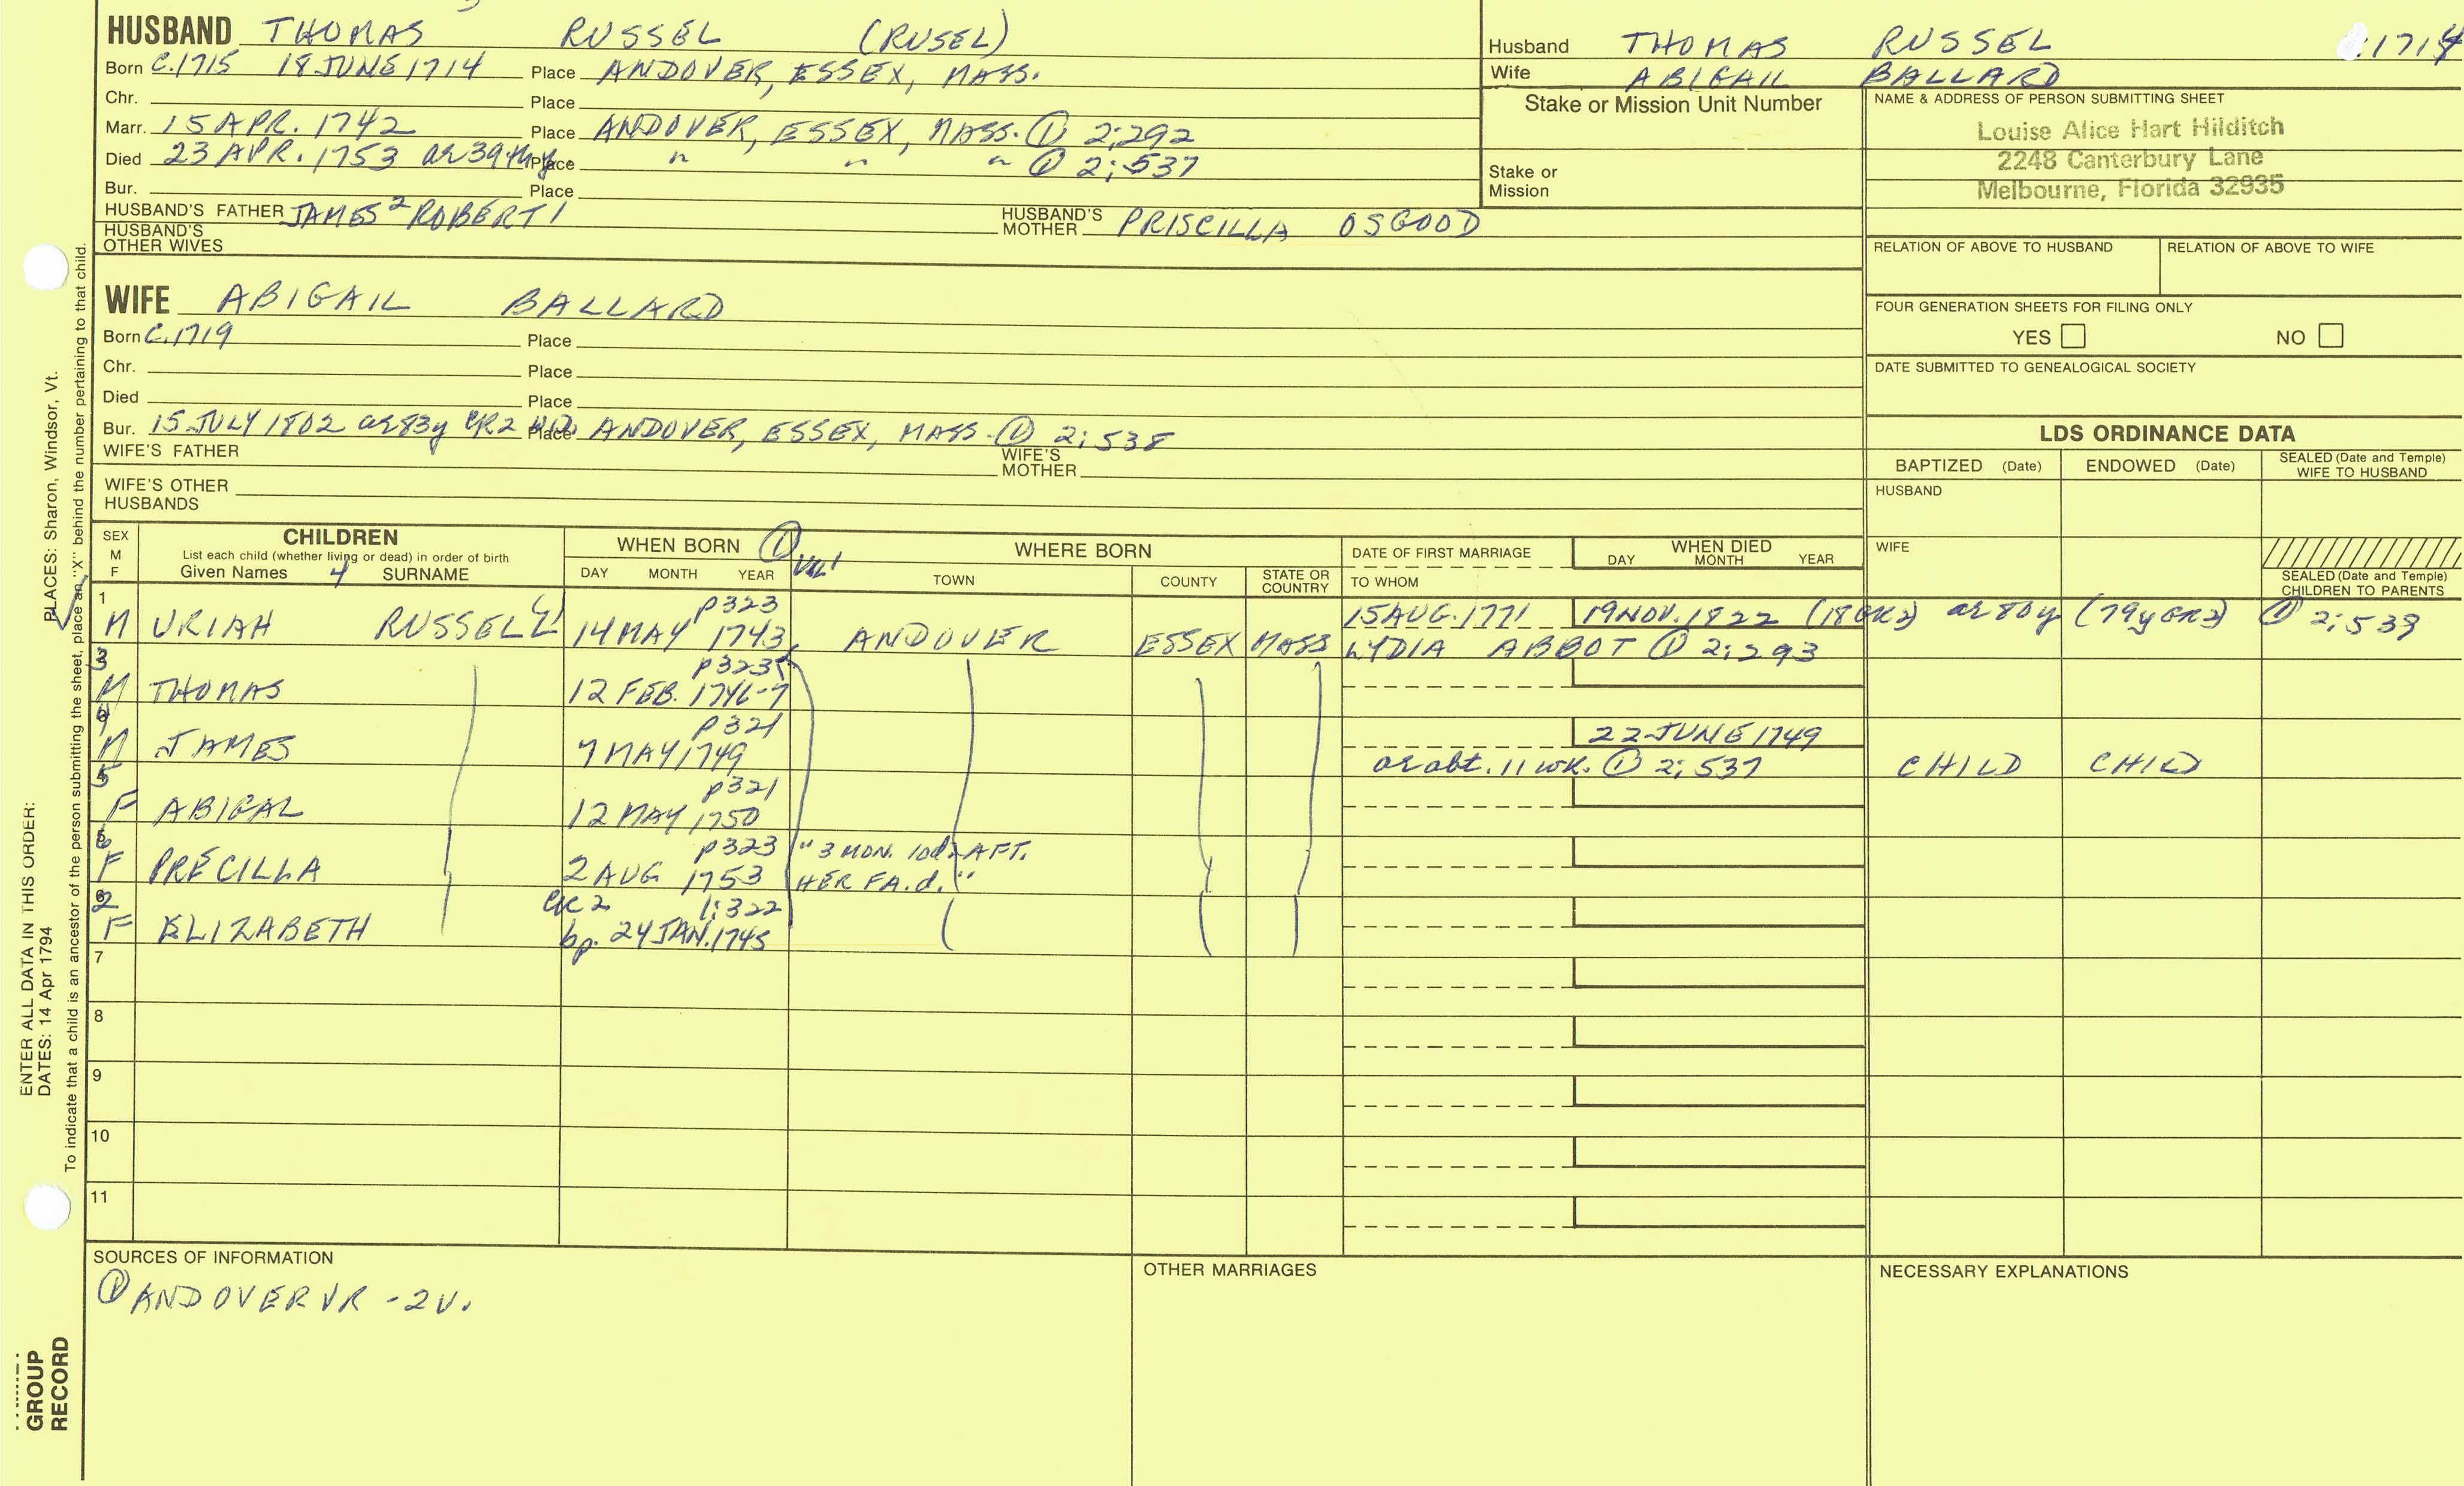 HUSBAND THOMAS RUSSEL (RUSEL)
Born C.1715 18 JUNE 1714 Place ANDOVER, ESSEX, MASS.
Chr. Place
Marr. 15 APR. 1742 Place ANDOVER, ESSEX, MASS. ① 2:292
Died 23 APR. 1753 ae 39th y. Place " " " ① 2:537
Bur. Place
HUSBAND'S FATHER JAMES² ROBERT¹ HUSBAND'S MOTHER PRISCILLA OSGOOD
HUSBAND'S OTHER WIVES
Husband THOMAS RUSSEL 1714
Wife ABIGAIL BALLARD
Stake or Mission Unit Number
Stake or Mission
NAME & ADDRESS OF PERSON SUBMITTING SHEET
Louise Alice Hart Hilditch
2248 Canterbury Lane
Melbourne, Florida 32935
RELATION OF ABOVE TO HUSBAND RELATION OF ABOVE TO WIFE
FOUR GENERATION SHEETS FOR FILING ONLY
YES NO
DATE SUBMITTED TO GENEALOGICAL SOCIETY
WIFE ABIGAIL BALLARD
Born C.1719 Place
Chr. Place
Died Place
Bur. 15 JULY 1802 ae 83y CR2 Place ANDOVER, ESSEX, MASS. ① 2:538
WIFE'S FATHER WIFE'S MOTHER
WIFE'S OTHER HUSBANDS
LDS ORDINANCE DATA
BAPTIZED (Date) ENDOWED (Date) SEALED (Date and Temple) WIFE TO HUSBAND
HUSBAND
WIFE
SEALED (Date and Temple) CHILDREN TO PARENTS
SEX M F
CHILDREN
List each child (whether living or dead) in order of birth
Given Names SURNAME
WHEN BORN ①
DAY MONTH YEAR
WHERE BORN
TOWN COUNTY STATE OR COUNTRY
DATE OF FIRST MARRIAGE
TO WHOM
WHEN DIED
DAY MONTH YEAR
1 p323 15 AUG. 1771 19 NOV. 1822 (18 GR3) ae 80y (79y GR3) ① 2:539
M URIAH RUSSELL 14 MAY 1743 ANDOVER ESSEX MASS LYDIA ABBOT ① 2:293
3 p323
M THOMAS 12 FEB. 1746-7
4 p321 22 JUNE 1749
M JAMES 7 MAY 1749 ae abt. 11 wk. ① 2:537 CHILD CHILD
5 p321
F ABIGAL 12 MAY 1750
6 p323 "3 MON. 10d. AFT.
F PRECILLA 2 AUG 1753 HER FA. d."
2 CR 2 1:322
F ELIZABETH bp. 24 JAN. 1745
7
8
9
10
11
SOURCES OF INFORMATION
① ANDOVER VR - 2V.
OTHER MARRIAGES
NECESSARY EXPLANATIONS
ENTER ALL DATA IN THIS ORDER:
DATES: 14 Apr 1794 PLACES: Sharon, Windsor, Vt.
To indicate that a child is an ancestor of the person submitting the sheet, place an "X" behind the number pertaining to that child.
GROUP
RECORD